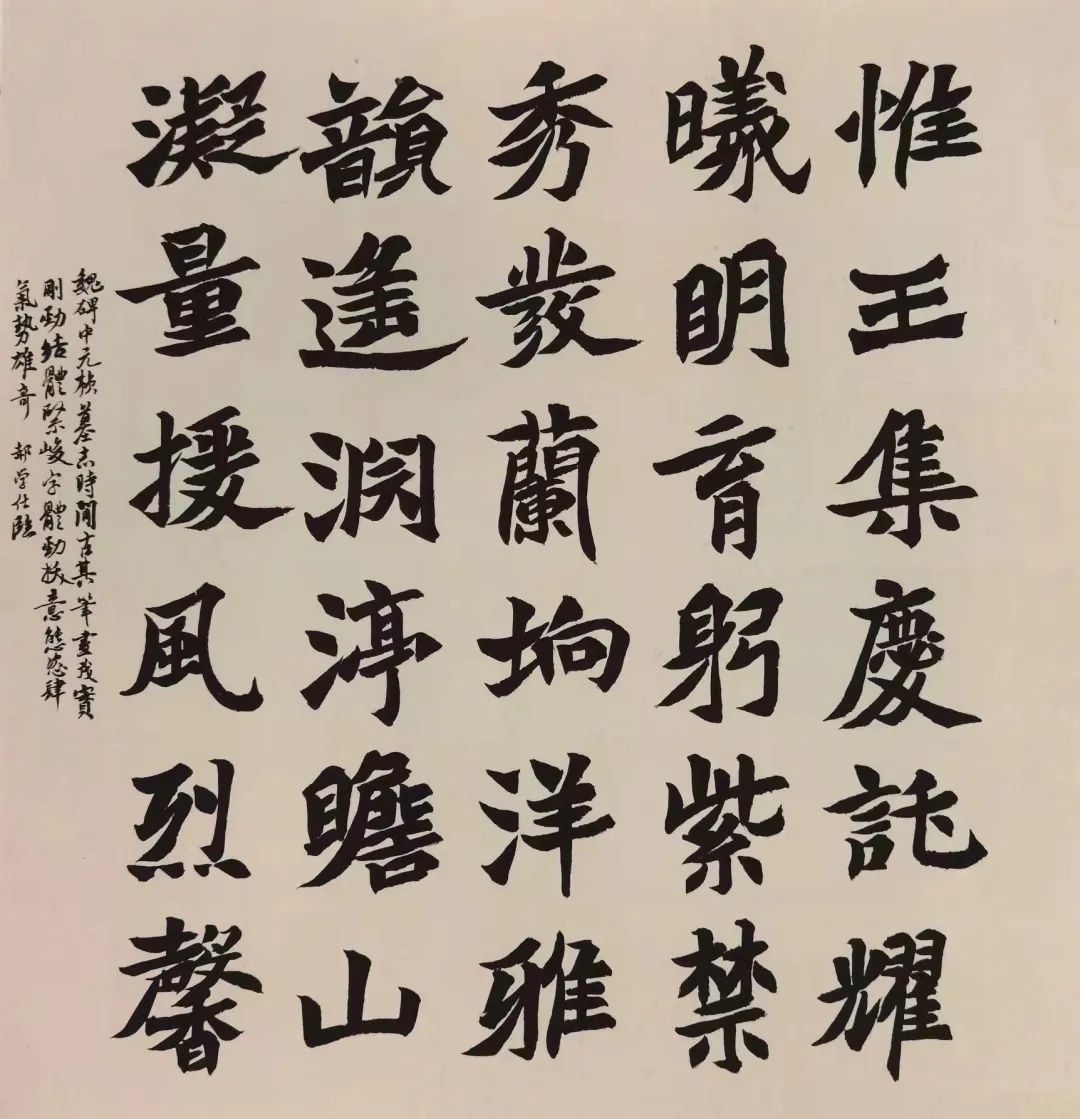 惟王集慶託耀
曦明育躬紫禁
秀發蘭坰洋雅
韻遙淵渟瞻山
凝量援風烈馨
魏碑中元楨墓志時間古其筆畫茂實
剛勁結體緊峻字體勁拔意態恣肆
氣勢雄奇 郝学仕臨